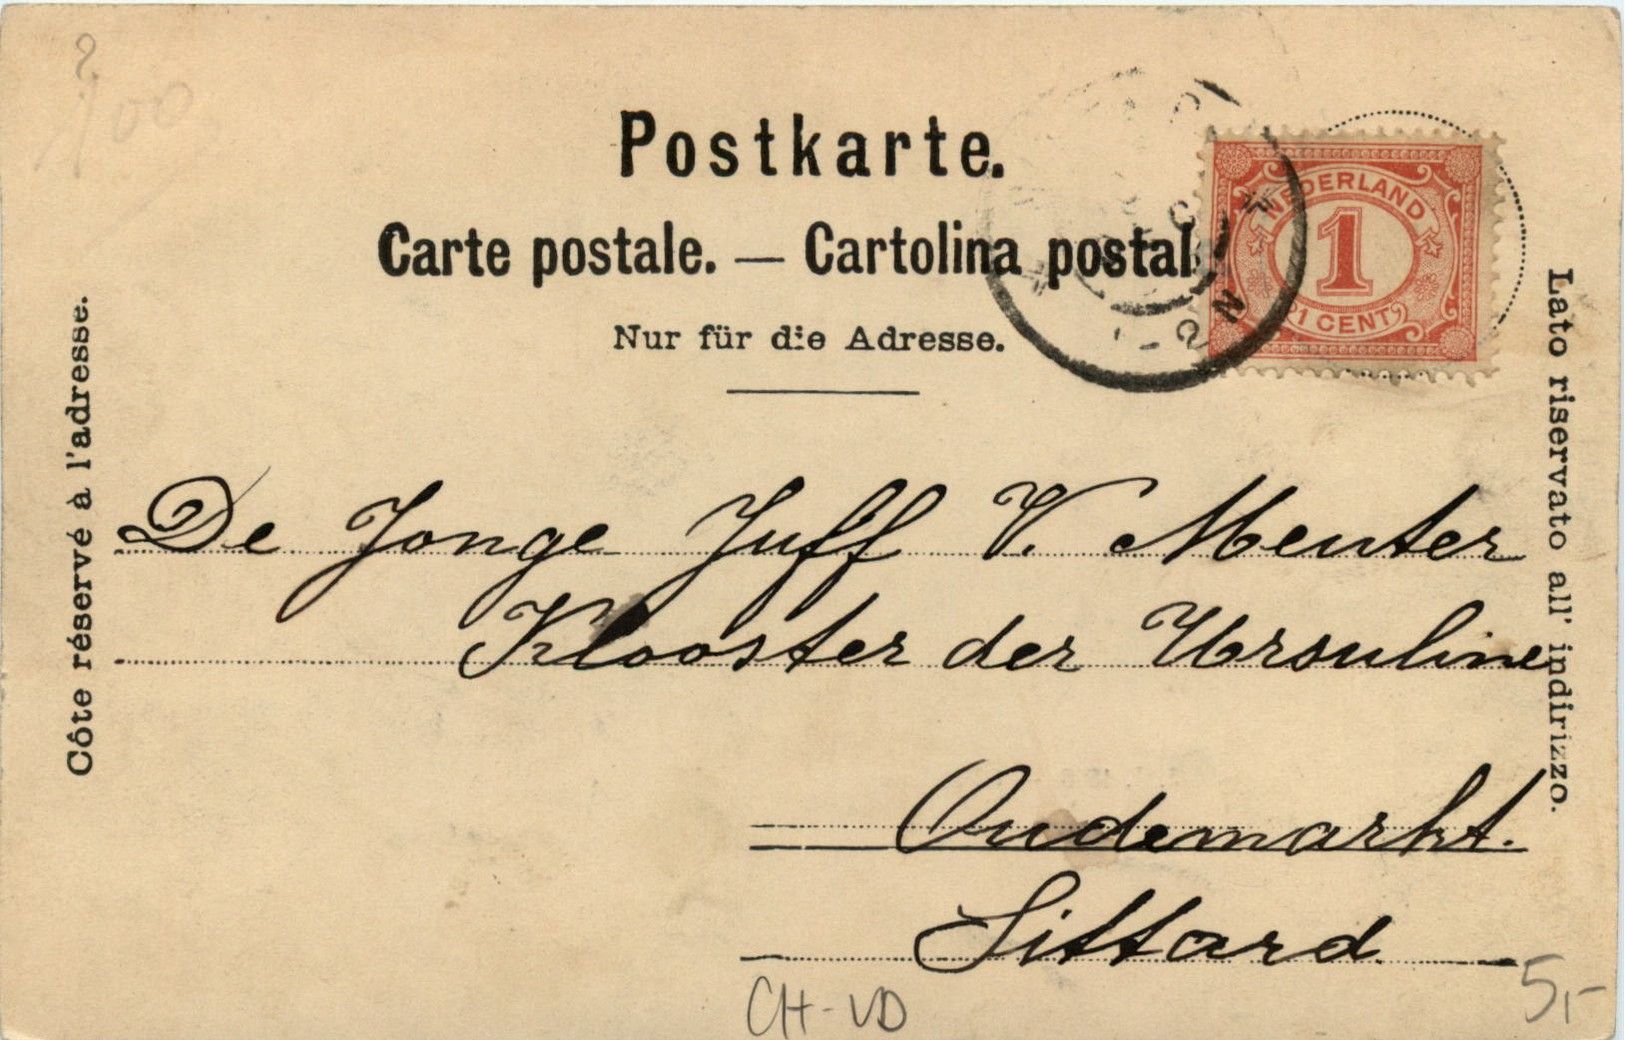 Postkarte.
Carte postale. — Cartolina postal
Nur für die Adresse.
NEDERLAND
1
1 CENT
Côte réservé à l'adresse.
Lato riservato all' indirizzo.
De Jonge Juff V. Menter
Klooster der Ursuline
Oudemarkt.
Sittard
CH-VD
5,-